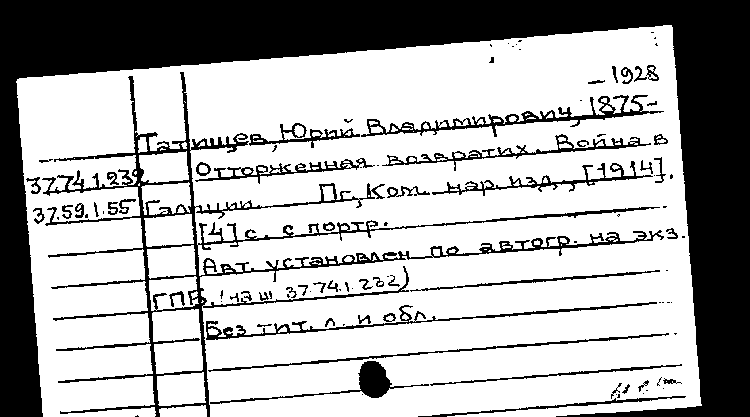 – 1928
Татищев, Юрий Владимирович, 1875-
37.74.1.232 Отторженная возвратих. Война в
37.59.1.55 Галиции. Пг, Ком. нар. изд., [1914].
[4] с. с портр.
Авт. установлен по автогр. на экз.
ГПБ. (наш 37.74.1.232)
Без тит. л. и обл.